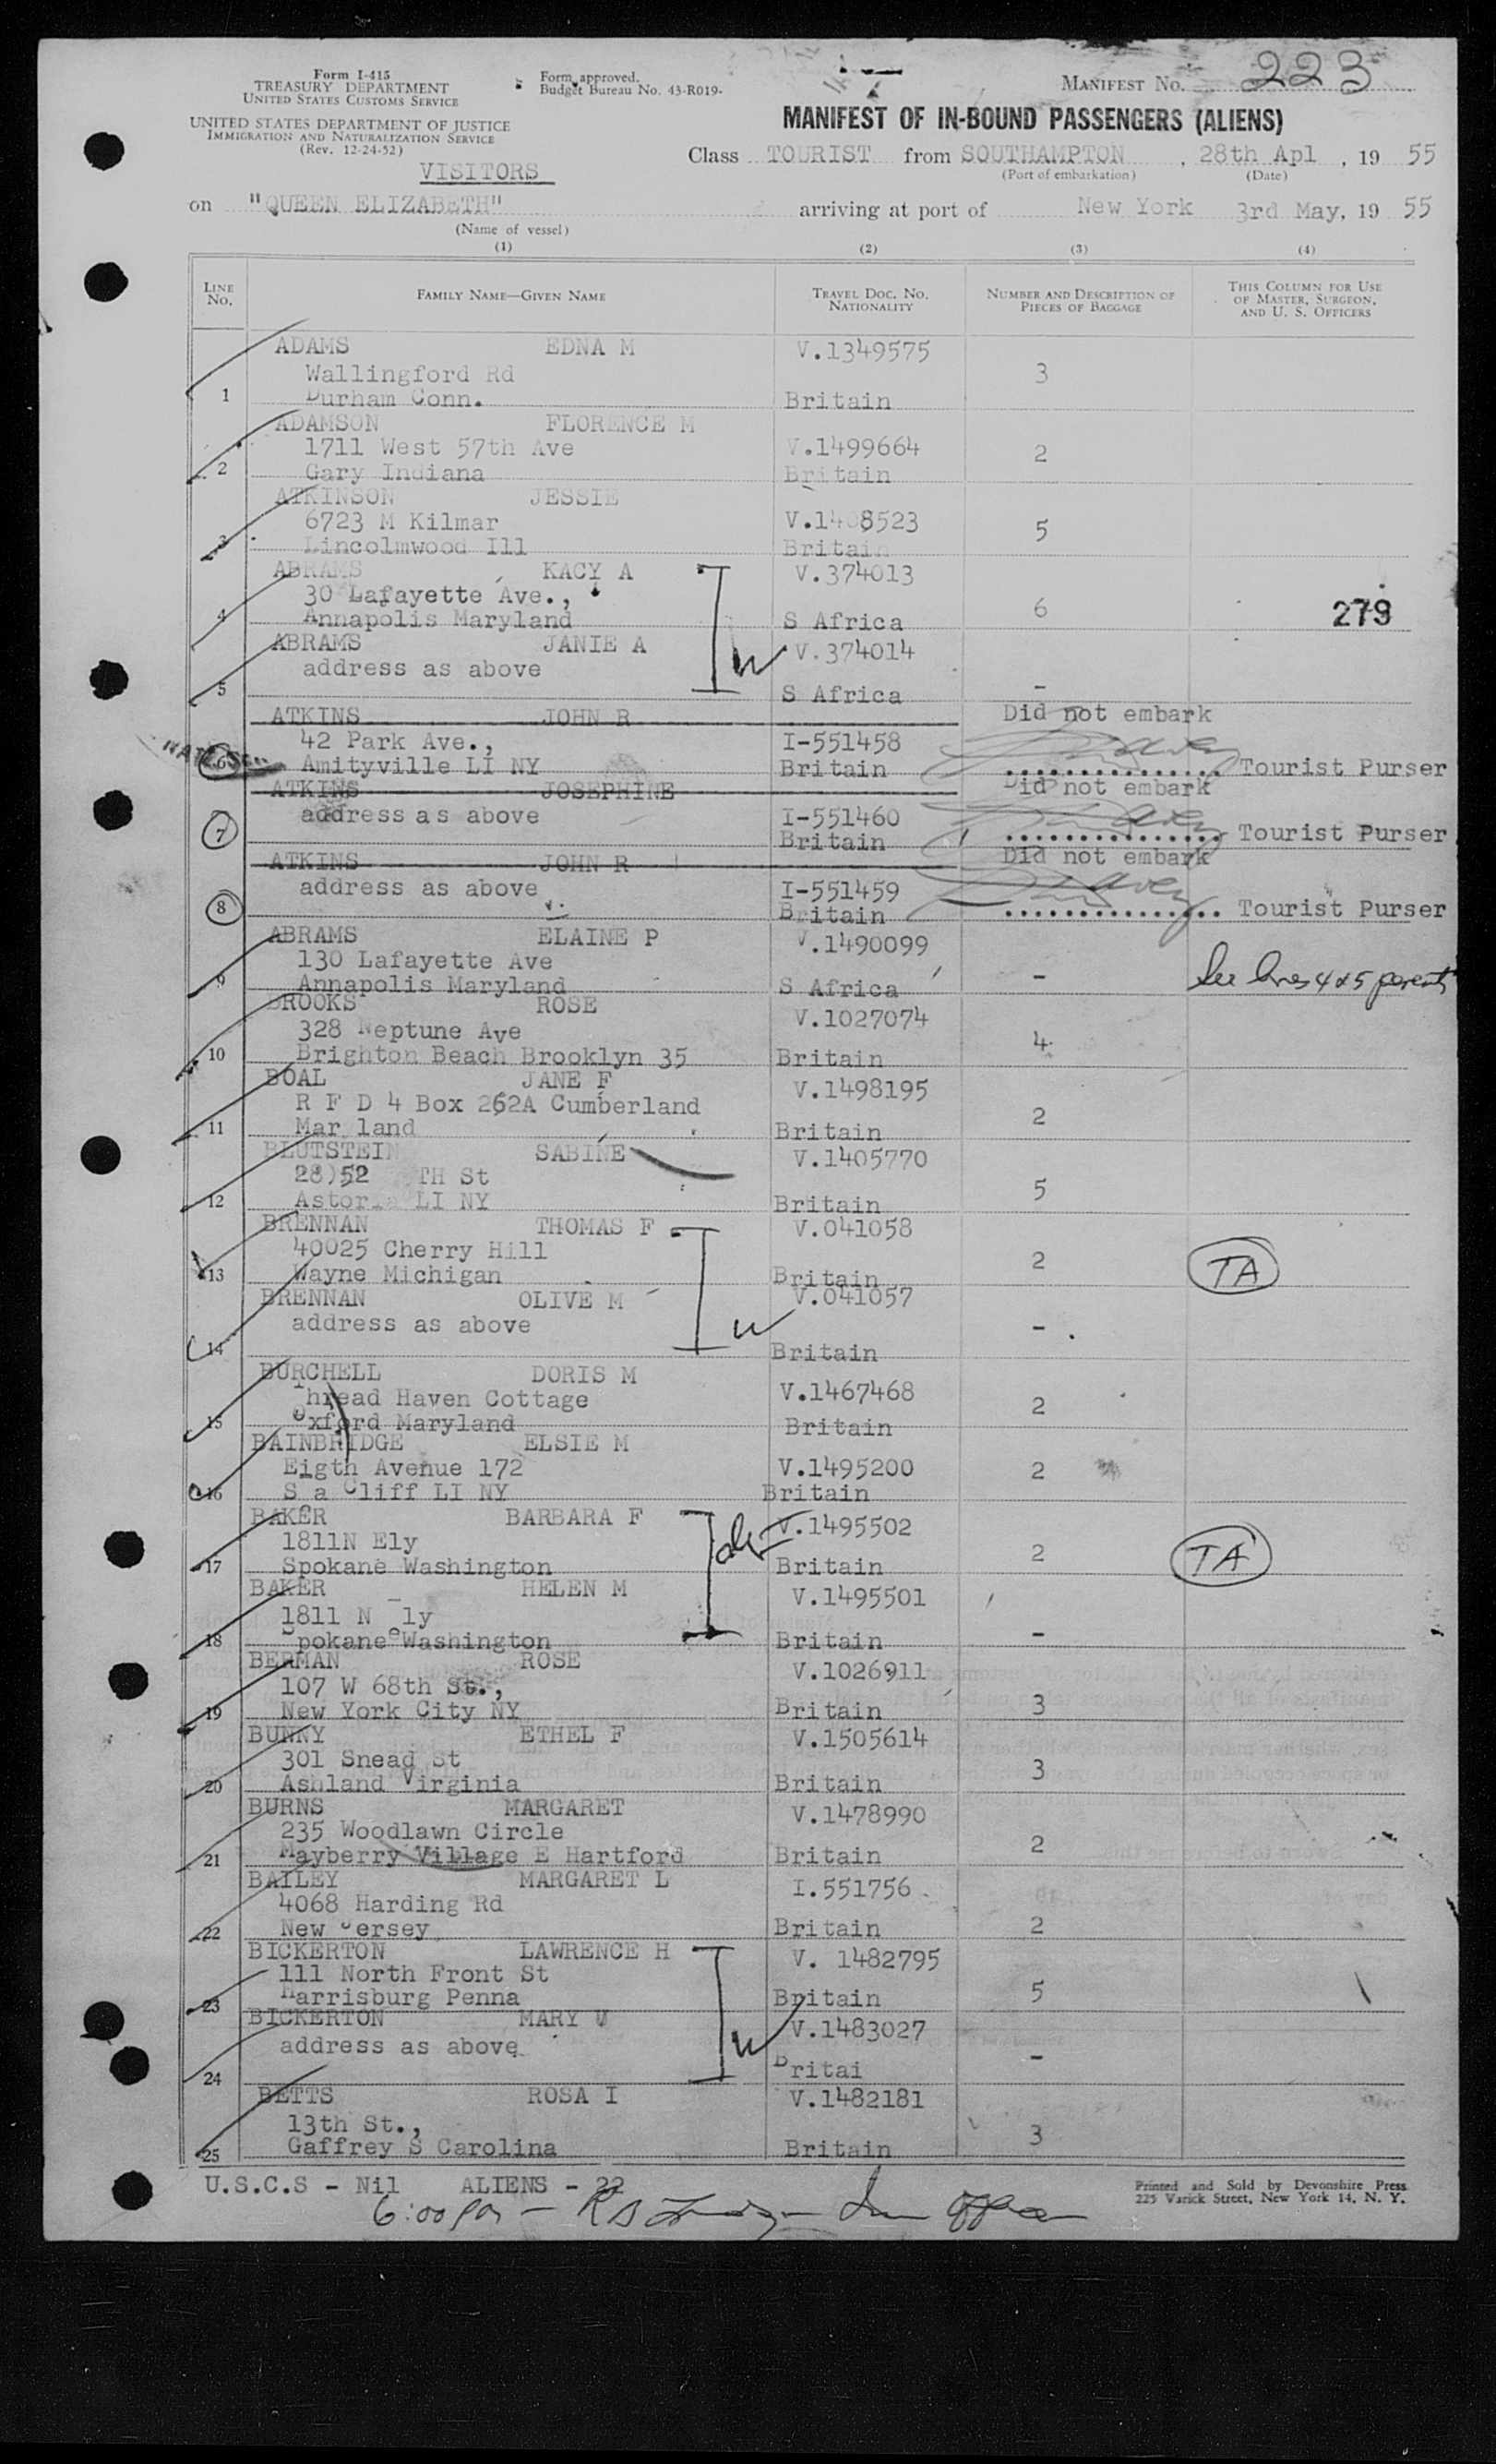 Form I-415
TREASURY DEPARTMENT
UNITED STATES CUSTOMS SERVICE
UNITED STATES DEPARTMENT OF JUSTICE
IMMIGRATION AND NATURALIZATION SERVICE
(Rev. 12-24-52)
Form approved.
Budget Bureau No. 43-R019-
MANIFEST No. 223
MANIFEST OF IN-BOUND PASSENGERS (ALIENS)
VISITORS
Class TOURIST from SOUTHAMPTON, 28th Apl, 19 55
(Port of embarkation) (Date)
on "QUEEN ELIZABETH" arriving at port of New York 3rd May, 19 55
(Name of vessel)
(1) (2) (3) (4)
LINE No. FAMILY NAME—GIVEN NAME TRAVEL DOC. No. NATIONALITY NUMBER AND DESCRIPTION OF PIECES OF BAGGAGE THIS COLUMN FOR USE OF MASTER, SURGEON, AND U. S. OFFICERS
ADAMS EDNA M V.1349575
Wallingford Rd 3
1 Durham Conn. Britain
ADAMSON FLORENCE M
1711 West 57th Ave V.1499664 2
2 Gary Indiana Britain
ATKINSON JESSIE
6723 M Kilmar V.1408523 5
3 Lincolmwood Ill Britain
ABRAMS KACY A V.374013
30 Lafayette Ave., 6 279
4 Annapolis Maryland S Africa
ABRAMS JANIE A V.374014
address as above W
5 S Africa -
ATKINS JOHN R Did not embark
42 Park Ave., I-551458
6 Amityville LI NY Britain Tourist Purser
ATKINS JOSEPHINE Did not embark
address as above I-551460
7 Britain Tourist Purser
ATKINS JOHN R Did not embark
address as above I-551459
8 Britain Tourist Purser
ABRAMS ELAINE P V.1490099
130 Lafayette Ave - See lines 4 & 5 parents
9 Annapolis Maryland S Africa
BROOKS ROSE V.1027074
328 Neptune Ave 4
10 Brighton Beach Brooklyn 35 Britain
BOAL JANE F V.1498195
R F D 4 Box 262A Cumberland 2
11 Mar land Britain
BLUTSTEIN SABINE V.1405770
28)52 TH St 5
12 Astoria LI NY Britain
BRENNAN THOMAS F V.041058
40025 Cherry Hill 2 TA
13 Wayne Michigan Britain
BRENNAN OLIVE M V.041057
address as above W -
14 Britain
BURCHELL DORIS M V.1467468
Thread Haven Cottage 2
15 Oxford Maryland Britain
BAINBRIDGE ELSIE M
Eigth Avenue 172 V.1495200 2
16 S a Cliff LI NY Britain
BAKER BARBARA F V.1495502
1811N Ely 2 TA
17 Spokane Washington Britain
BAKER HELEN M V.1495501
1811 N ly
18 Spokane Washington Britain -
BERMAN ROSE V.1026911
107 W 68th St., 3
19 New York City NY Britain
BUNNY ETHEL F V.1505614
301 Snead St 3
20 Ashland Virginia Britain
BURNS MARGARET V.1478990
235 Woodlawn Circle 2
21 Mayberry Village E Hartford Britain
BAILEY MARGARET L I.551756
4068 Harding Rd
22 New Jersey Britain 2
BICKERTON LAWRENCE H V. 1482795
111 North Front St 5
23 Harrisburg Penna Britain
BICKERTON MARY W V.1483027
address as above W -
24 Britai
BETTS ROSA I V.1482181
13th St., 3
25 Gaffrey S Carolina Britain
U.S.C.S - Nil ALIENS - 22
Printed and Sold by Devonshire Press
225 Varick Street, New York 14, N. Y.
6:00 pm -